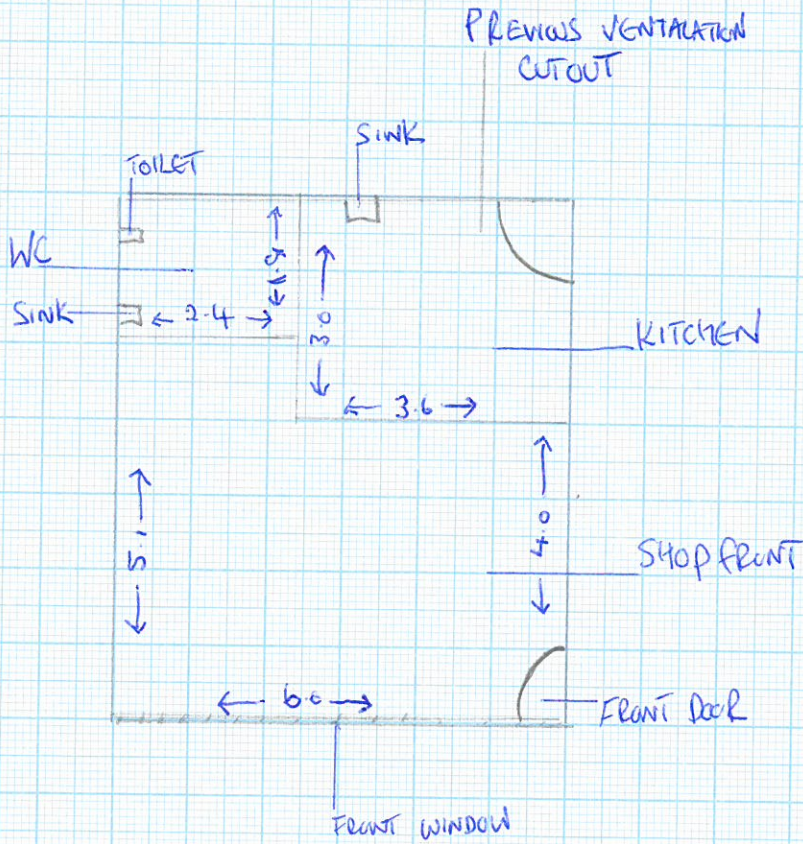 PREVIOUS VENTALATION
CUTOUT
SINK
TOILET
WC
1.9
3.0
SINK
2.4
KITCHEN
3.6
5.1
4.0
SHOP FRONT
6.0
FRONT DOOR
FRONT WINDOW